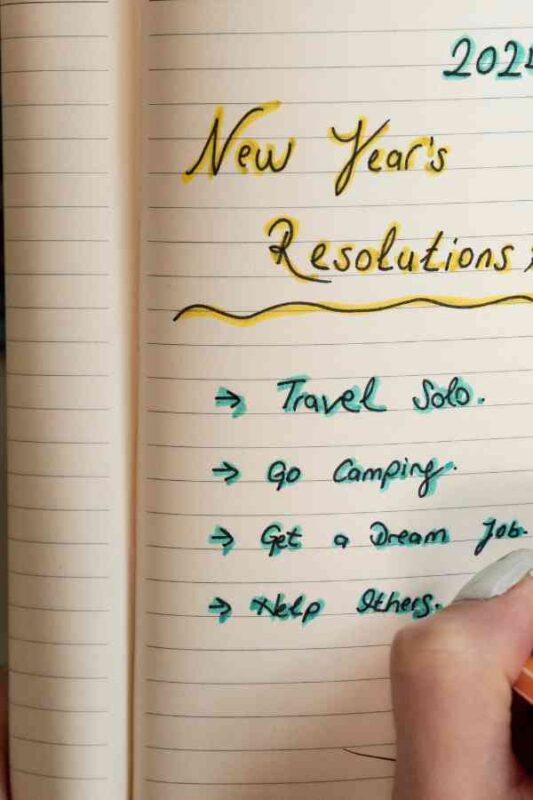 New Year's
Resolutions
→ Travel Solo.
→ Go Camping.
→ Get a Dream Job.
→ Help Others.